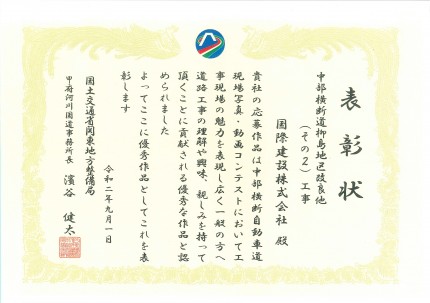 表彰状
中部横断道柳島地区改良他
（その２）工事
国際建設株式会社 殿
貴社の応募作品は中部横断自動車道
現場写真・動画コンテストにおいて工
事現場の魅力を表現し広く一般の方へ
道路工事の理解や興味、親しみを持って
頂くことに貢献される優秀な作品と認
められました
よってここに優秀作品としてこれを表
彰します
令和二年九月一日
国土交通省関東地方整備局
甲府河川国道事務所長 濱谷 健太